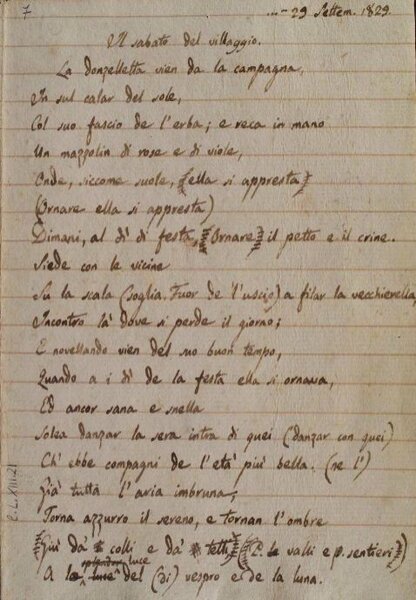 7
29 Settem. 1829.
Il sabato del villaggio.
La donzelletta vien da la campagna,
In sul calar del sole,
Col suo fascio de l'erba; e reca in mano
Un mazzolin di rose e di viole,
Onde, siccome suole, (ella si appresta)
(Ornare ella si appresta)
Dimani, al dì di festa, (Ornare) il petto e il crine.
Siede con le vicine
Su la scala (soglia. Fuor de l'uscio) a filar la vecchierella
Incontro là dove si perde il giorno;
E novellando vien del suo buon tempo,
Quando a i dì de la festa ella si ornava,
Ed ancor sana e snella
Solea danzar la sera intra di quei (danzar con quei)
Ch'ebbe compagni de l'età più bella. (ne l')
Già tutta l'aria imbruna,
Torna azzurro il sereno, e tornan l'ombre
(Giù da colli e da tetti) (P. le valli e p. sentieri)
luce
A la luce del (di) vespro e de la luna.